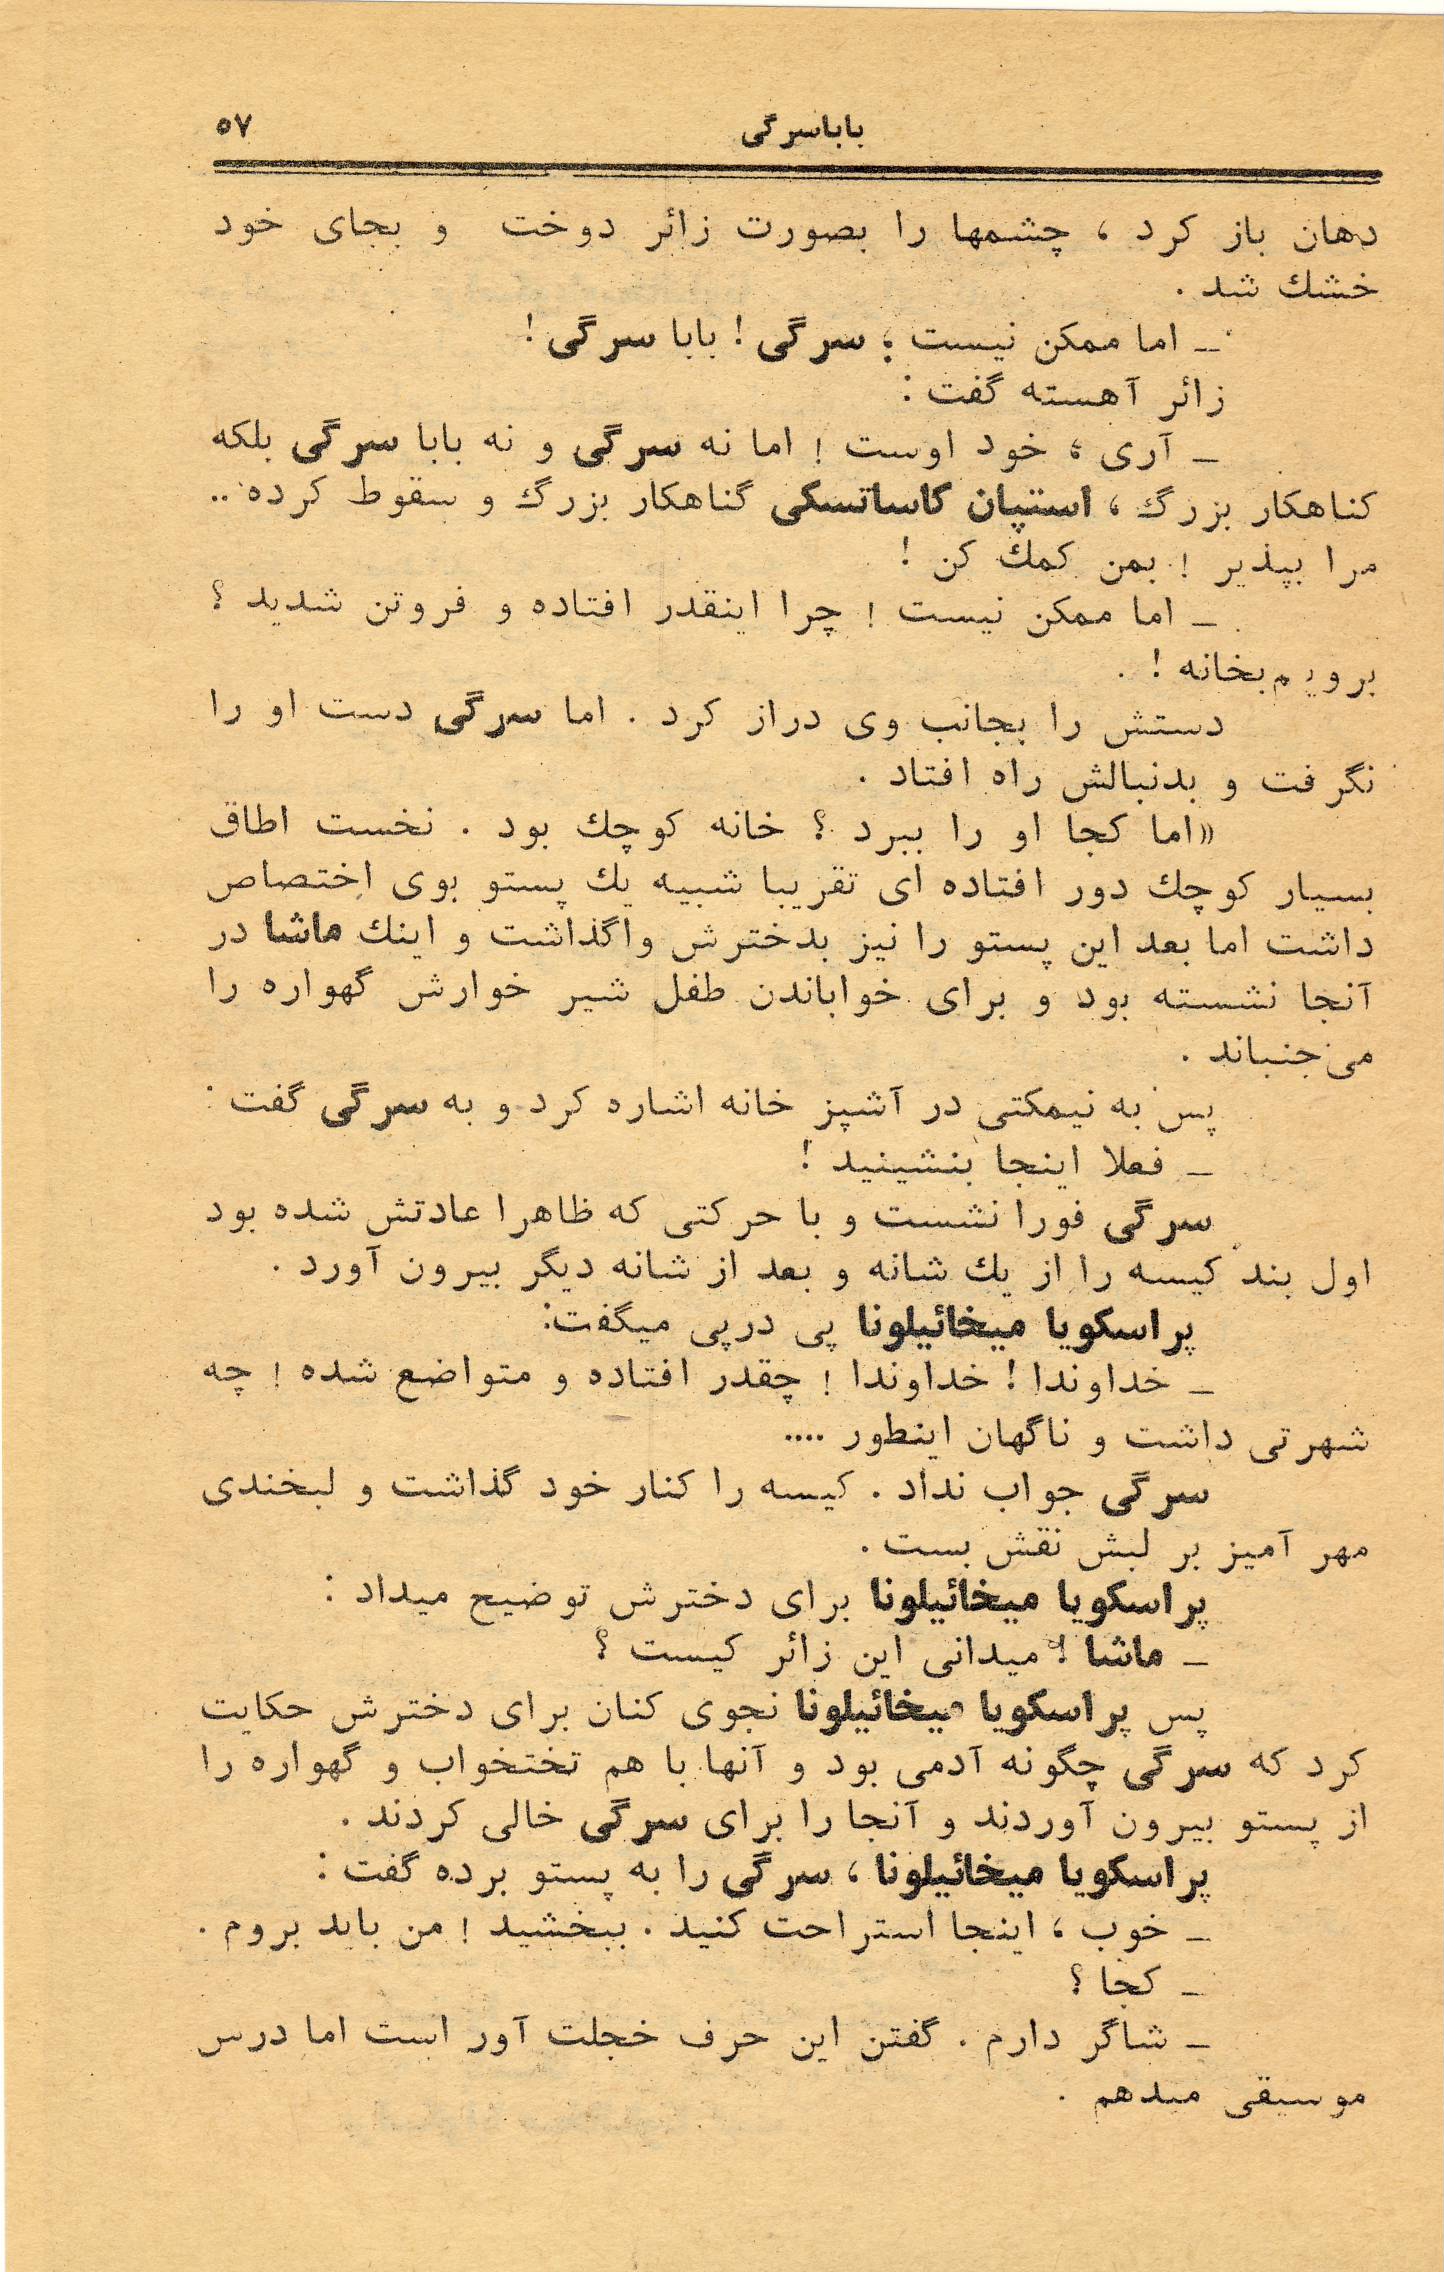 باباسرگی ۵۷
دهان باز کرد ، چشمها را بصورت زائر دوخت و بجای خود
خشك شد .
ـ اما ممکن نیست ؛ سرگی ! بابا سرگی !
زائر آهسته گفت :
ـ آری ، خود اوست ! اما نه سرگی و نه بابا سرگی بلکه
گناهکار بزرگ ، استپان کاساتسکی گناهکار بزرگ و سقوط کرده ..
مرا بپذیر ! بمن کمك کن !
ـ اما ممکن نیست ! چرا اینقدر افتاده و فروتن شدید ؟
برویم بخانه ! .
دستش را بجانب وی دراز کرد . اما سرگی دست او را
نگرفت و بدنبالش راه افتاد .
«اما کجا او را ببرد ؟ خانه کوچك بود . نخست اطاق
بسیار کوچك دور افتاده ای تقریبا شبیه یك پستو بوی اختصاص
داشت اما بعد این پستو را نیز بدخترش واگذاشت و اینك ماشا در
آنجا نشسته بود و برای خواباندن طفل شیر خوارش گهواره را
می‌جنباند .
پس به نیمکتی در آشپز خانه اشاره کرد و به سرگی گفت :
ـ فعلا اینجا بنشینید !
سرگی فورا نشست و با حرکتی که ظاهرا عادتش شده بود
اول بند کیسه را از یك شانه و بعد از شانه دیگر بیرون آورد .
پراسکویا میخائیلونا پی درپی میگفت:
ـ خداوندا ! خداوندا ! چقدر افتاده و متواضع شده ! چه
شهرتی داشت و ناگهان اینطور ....
سرگی جواب نداد . کیسه را کنار خود گذاشت و لبخندی
مهر آمیز بر لبش نقش بست .
پراسکویا میخائیلونا برای دخترش توضیح میداد :
ـ ماشا ! میدانی این زائر کیست ؟
پس پراسکویا میخائیلونا نجوی کنان برای دخترش حکایت
کرد که سرگی چگونه آدمی بود و آنها با هم تختخواب و گهواره را
از پستو بیرون آوردند و آنجا را برای سرگی خالی کردند .
پراسکویا میخائیلونا ، سرگی را به پستو برده گفت :
ـ خوب ، اینجا استراحت کنید . ببخشید ! من باید بروم .
ـ کجا ؟
ـ شاگر دارم . گفتن این حرف خجلت آور است اما درس
موسیقی میدهم .